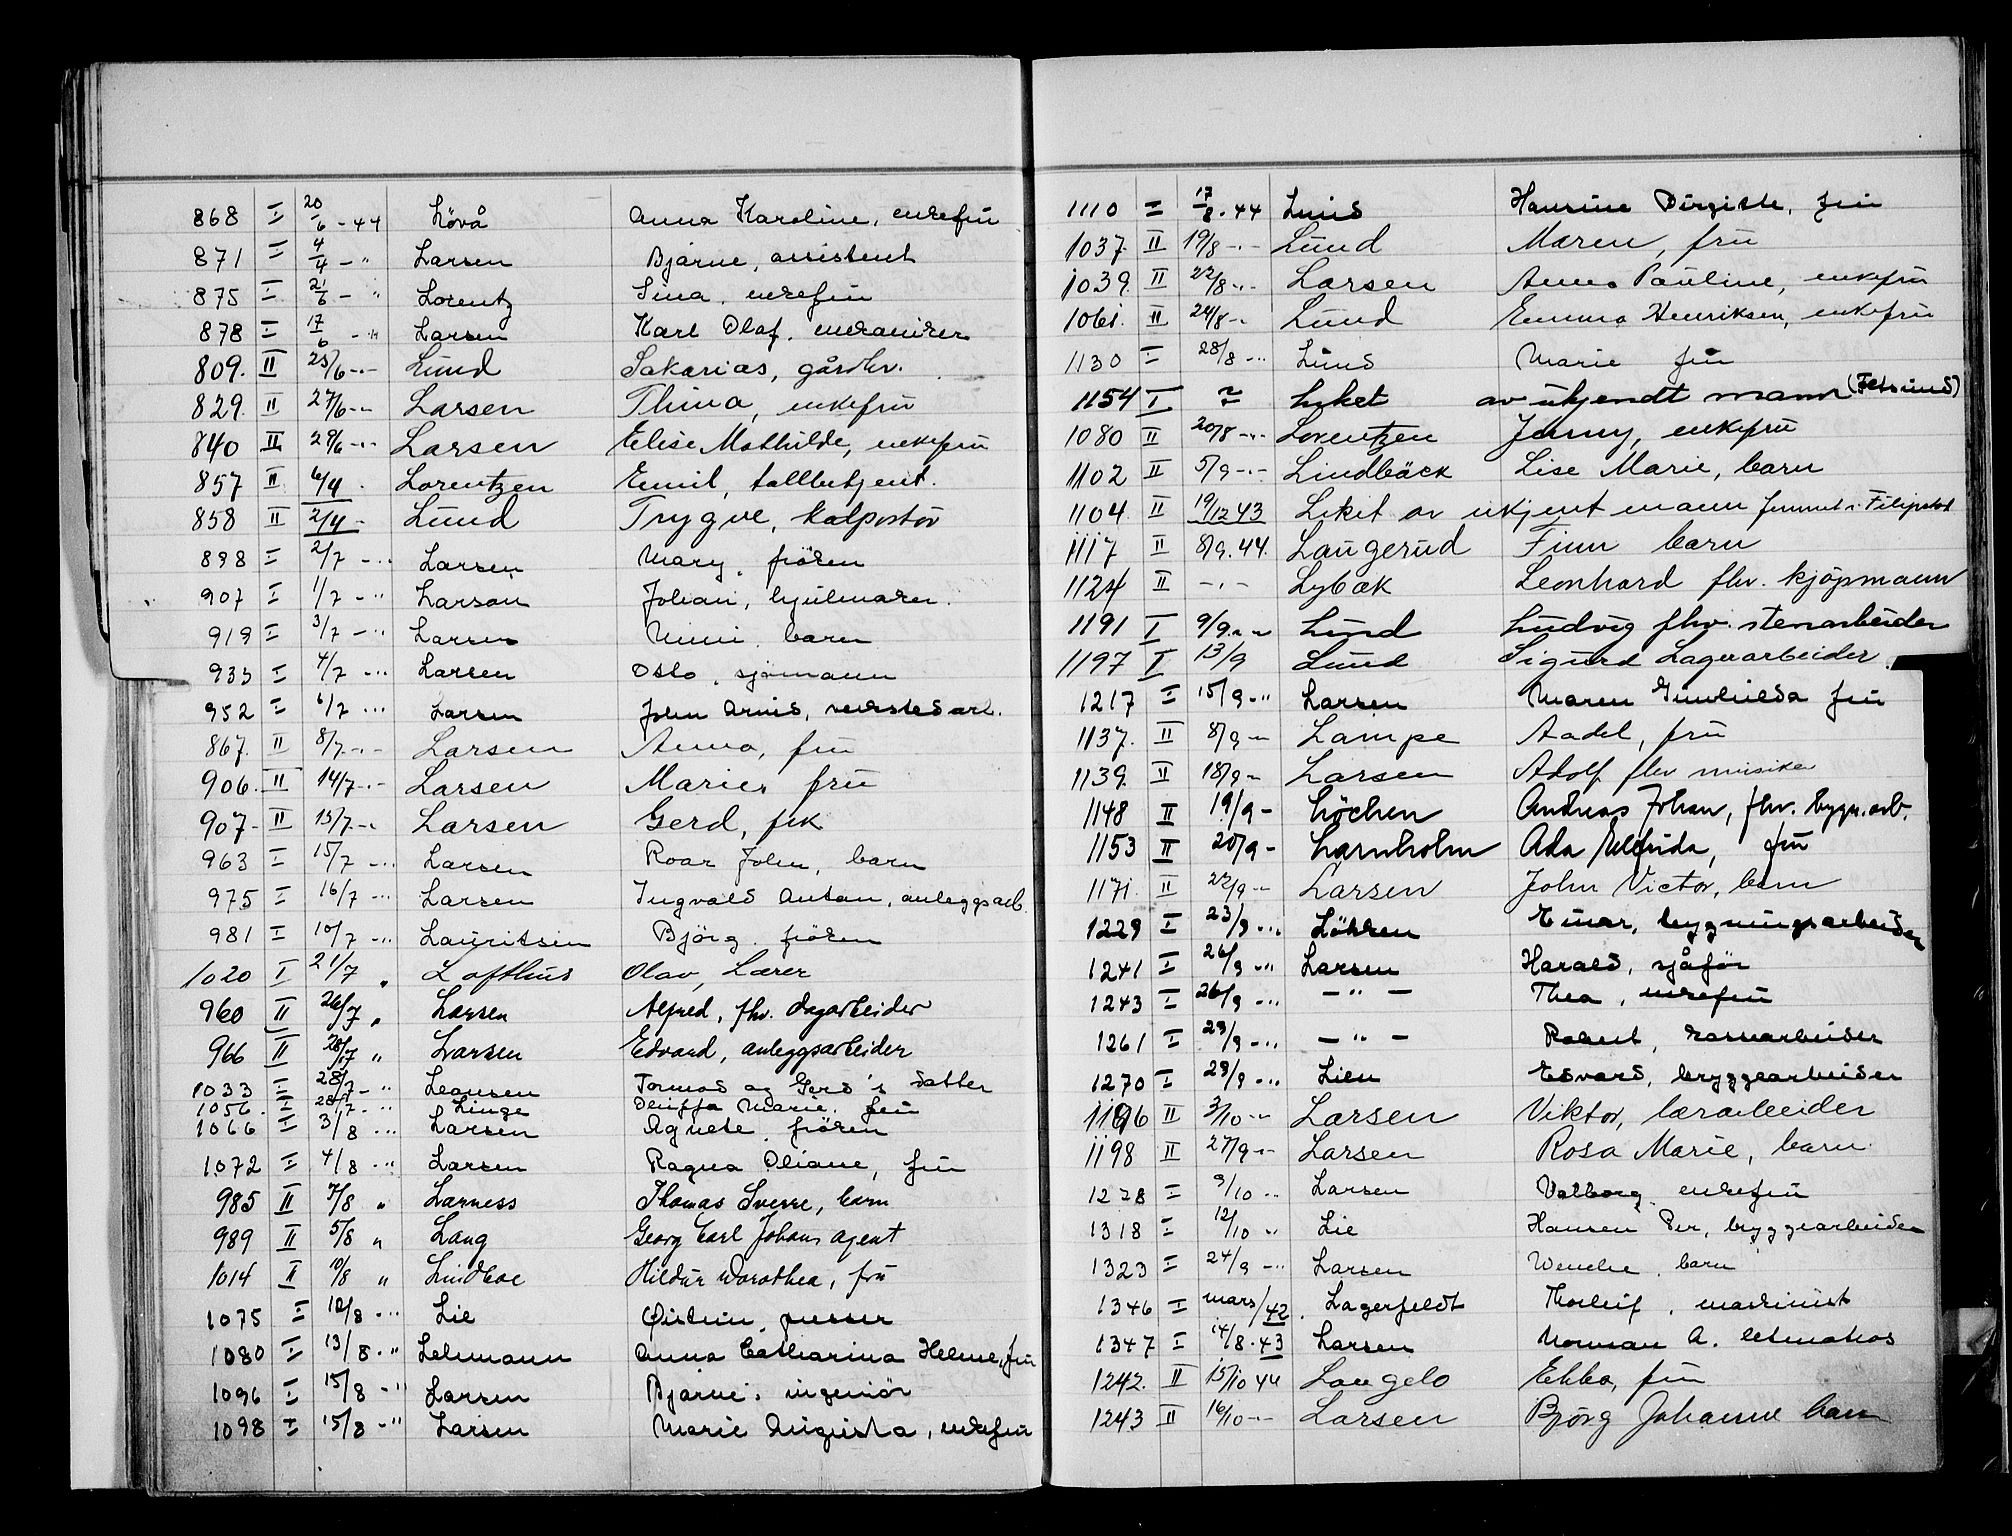 868 I 20/6 - 44 Lövå Anna Karoline, enkefru
871 I 4/4 - " Larsen Bjarne, assistent
875 I 21/6 - " Lorentz Sina, enkefru
878 I 17/6 - " Larsen Karl Olaf, mekaniker
809. II 25/6 -"- Lund Sakarias, gårdbr.
829. II 27/6 -"- Larsen Thina, enkefru
840 II 29/6 -"- Larsen Elise Mathilde, enkefru
857 II 6/4 . Lorentzen Emil, tollbetjent.
858 II 2/4 - Lund Trygve, kolportör
898 I 2/7 -"- Larsen Mary, fröken
907 I 1/7 - " Larsen Johan, hjulmaker.
919 I 3/7 - " Larsen Mimi, barn
935 I 4/7 -"- Larsen Oslo, sjömann
952 I 6/7 -"- Larsen John Arnid, verkstedarb.
867. II 8/7 -"- Larsen Anna, fru
906. II 14/7 -"- Larsen Marie, fru
907 - II 15/7 -"- Larsen Gerd, frk
963 I 15/7 -"- Larsen Roar John, barn
975 I 16/7 -"- Larsen Ingvald Anton, anleggsarb.
981 I 10/7 -"- Lauritsen Björg, fröken
1020 I 21/7 " Lofthus Olav, Lærer
960 II 26/7 " Larsen Alfred, fhv. dagarbeider
966 II 28/7 " Larsen Edvard, anleggsarbeider
1033 I 28/7 - " Tormod og Gerd's datter
1056. I 28/7 - " Linge Marie, fru
1066 I 3/8 -"- Larsen Agnete, fröken
1072 I 4/8 -"- Larsen Ragna Oliane, fru
985 II 7/8 " Larness Thomas Sverre, barn
989 II 5/8 " Lang Georg Carl Johans agent
1014 II 10/8 " Lindboe Hildur Dorothea, fru
1075 I 12/8 -"- Lie Øistein, pusser
1080 I 13/8 - " Lehmann Anna Catharina Helene, fru
1096 I 15/8 - " Larsen Bjarne, ingeniör
1098 I 15/8 - " Larsen Marie Augusta, enkefru
1110 I 17/8 - 44 Lund Hansine Birgitte, fru
1037. II 19/8 -"- Lund Maren, fru
1039. II 22/8 -"- Larsen Anna Pauline, enkefru
1061. II 24/8 -"- Lund Emma Henriksen, enkefru
1130 I 28/8 -"- Lund Marie fru
1154 I ? Liket av ukjendt mann (Fetsund)
1080 II 20/8 -"- Lorentzen Jenny, enkefru
1102 II 5/9 -"- Lindbäck Lise Marie, barn
1104. II 19/12 43 Liket av ukjent mann funnet i Filipstad
1117 II 8/9. 44. Laugerud Finn barn
1124 II -"- Lybæk Leonhard fhv. kjöpmann
1191 I 9/9 " " Lund Ludvig fhv. stenarbeider
1197 I 13/9 Lund Sigurd Lagerarbeider
1217 I 15/9 -" Larsen Maren Gunhilda fru
1137. II 8/9 -"- Lampe Aadel, fru
1139. II 18/9 - Larsen Adolf fhv musiker
1148 II 19/9 - Löchen Andreas Johan, fhv. bygn.arb.
1153 II 20/9 - Larnholm Ada Elfrida, fru
1171. II 22/9 -"- Larsen John Victor, barn
1229 I 23/9 -"- Lökken Einar, bygningsarbeider
1241 I 26/9 -" Larsen Harald, sjåför
1243 I 26/9 -"- - " - Thea, enkefru
1261 I 29/9 -"- - " - Robert,
1270 I 29/9 -"- Lien Edvard, bryggearbeider
1196 II 3/10 -"- Larsen Viktor, lærarbeider
1198 II 27/9 -"- Larsen Rosa Marie, barn
1278 I 9/10 -" Larsen Valborg, enkefru
1318 I 12/10 " Lie Hansen Per, bryggearbeider
1323 I 24/9 -" Larsen Wenche, barn
1346 I mars/42. Lagerfeldt Thorleif, maskinist
1347 I 14/8. 43 Larsen Norman A. letmatros
1242. II 15/10 44 Langelo Ebba, fru
1243 II 16/10 -"- Larsen Björg Johanne barn